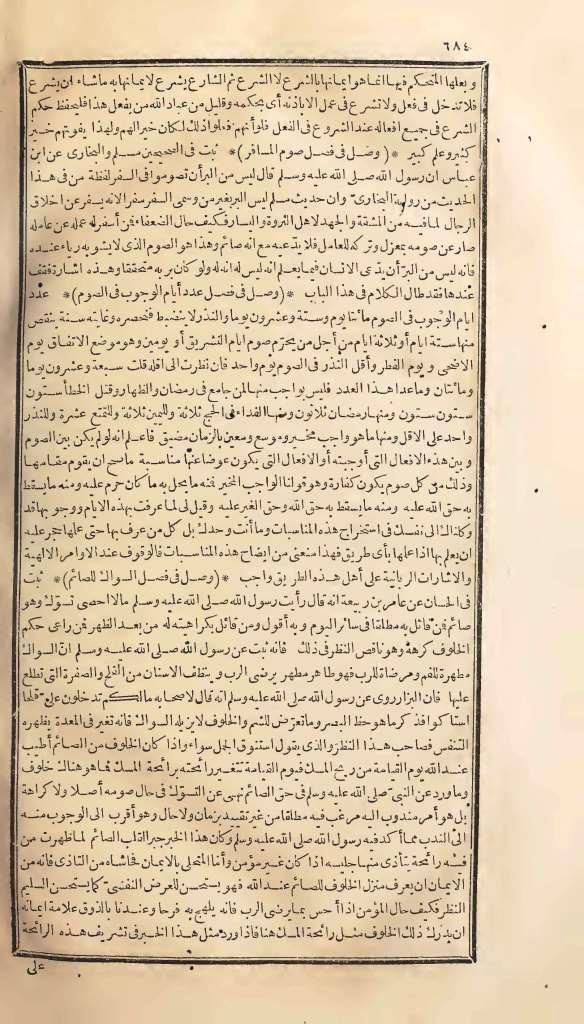 ٦٨٤
وبعلها المتحكم فيها انما هو ايمانها بالشرع لا الشرع ثم الشارع يشرع لايمانها به ماشاء ان يشرع
فلا تدخل فى فعل ولا تشرع فى عمل الا باذنه أى بحكمه وقليل من عباد الله من يفعل هذا فليحفظ حكم
الشرع فى جميع افعاله عند الشروع فى الفعل فلو أنهم فعلوا ذلك لكان خيرا لهم ولهذا يفوتهم خير
كثير وعلم كبير * (وصل فى فصل صوم المسافر) * ثبت فى الصحيحين مسلم والبخارى عن ابن
عباس ان رسول الله صلى الله عليه وسلم قال ليس من البر أن تصوموا فى السفر لفظة من فى هذا
الحديث من رواية البخارى وان حديث مسلم ليس البر بغير من وسمى السفر سفرا لانه يسفر عن اخلاق
الرجال لما فيه من المشقة والجهد لاهل الثروة واليسار فكيف حال الضعفاء فمن أسفر له عمله عن عامله
صار عن صومه بمعزل وتركه للعامل فلا يدعيه مع انه صائم وهذا هو الصوم الذى لا يشوبه رياء عنده
فانه ليس من البر أن يدعى الانسان فيما يعلم انه ليس له انه له ولو كان بربه متحققا وهذه اشارة فقف
عندها فقد طال الكلام فى هذا الباب * (وصل فى فصل عدد أيام الوجوب فى الصوم) * عدد
ايام الوجوب فى الصوم مائتا يوم وستة وعشرون يوما والنذر لا ينضبط فنحصره وغايته سنة ينقص
منها ستة ايام أو ثلاثة ايام من أجل من يحرّم صوم ايام التشريق أو يومين وهو موضع الاتفاق يوم
الاضحى ويوم الفطر وأقل النذر فى الصوم يوم واحد فان نظرت الى اقله قلت سبعة وعشرون يوما
ومائتان وماعدا هذا العدد فليس بواجب منها لمن جامع فى رمضان والظهار وقتل الخطأ ستون
ستون ستون ومنها رمضان ثلاثون ومنها الفداء فى الحج ثلاثة ولليمين ثلاثة وللتمتع عشرة وللنذر
واحد على الاقل ومنها ما هو واجب مخير وموسع ومعين بالزمان مضيق فاعلم انه لو لم يكن بين الصوم
وبين هذه الافعال التى أوجبته أو الافعال التى يكون عوضا عنها مناسبة ما صح ان يقوم مقامها
وذلك من كل صوم يكون كفارة وهو قولنا الواجب المخير فمنه ما يحل به ما كان حرم عليه ومنه ما يسقط
به حق الله عليه ومنه ما يسقط به حق الله وحق الغير عليه وقيل لى لما عرفت بهذه الايام ووجوبها قد
وكلناك الى نفسك فى استخراج هذه المناسبات وما أنت وحدك بل كل من عرف بها حتى علمها حجر عليه
ان يعلم بها اذا علمها بأى طريق فهذا منعنى من ايضاح هذه المناسبات فالوقوف عند الاوامر الالهية
والاشارات الربانية على أهل هذه الطريق واجب * (وصل فى فصل السواك للصائم) * ثبت
فى الحسان عن عامر بن ربيعة انه قال رأيت رسول الله صلى الله عليه وسلم ما لا احصى تسوك وهو
صائم فمن قائل به مطلقا فى سائر اليوم وبه أقول ومن قائل بكراهيته له من بعد الظهر فمن راعى حكم
الخلوف كرهه وهو ناقص النظر فى ذلك فانه ثبت عن رسول الله صلى الله عليه وسلم ان السواك
مطهرة للفم ومرضاة للرب فهو طاهر مطهر يرضى الرب وينظف الاسنان من القلح والصفرة التى تطلع
عليها فان البزار روى عن رسول الله صلى الله عليه وسلم انه قال لاصحابه مالكم تدخلون علىّ قلحا
استاكوا فذكر ما هو حظ البصر وما تعرّض للشم والخلوف لا يزيله السواك فانه تغير فى المعدة يظهره
التنفس فصاحب هذا النظر والذى يقول استنوق الجمل سواء واذا كان الخلوف من الصائم أطيب
عند الله يوم القيامة من ريح المسك فيوم القيامة تتغير رائحته برائحة المسك فما هو هناك خلوف
وما ورد عن النبىّ صلى الله عليه وسلم فى حق الصائم نهى عن التسوّك فى حال صومه أصلا ولا كراهة
بل هو أمر مندوب اليه مرغب فيه مطلقا من غير تقييد بزمان ولا حال وهو أقرب الى الوجوب منه
الى الندب مما أكد فيه رسول الله صلى الله عليه وسلم وكان هذا الخبر جبرا لقلب الصائم لما ظهرت من
فيه رائحة يتأذى منها جليسه اذا كان غير مؤمن وأما المتحلى بالايمان فحاشاه من التاذى فانه من
الايمان ان يعرف منزل الخلوف للصائم عند الله فهو يستحسن للعرض النفسىّ كما يستحسن السليم
النظر فكيف حال المؤمن اذا أحس بما يرضى الرب فانه يلهج به فرحا وعندنا بالذوق علامة ايمانه
ان يدرك ذلك الخلوف مثل رائحة المسك هنا فاذا ورد مثل هذا الخبر فى تشريف هذه الرائحة
على